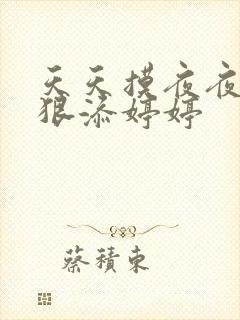 天天摸夜夜
狠添婷婷
蔡積東